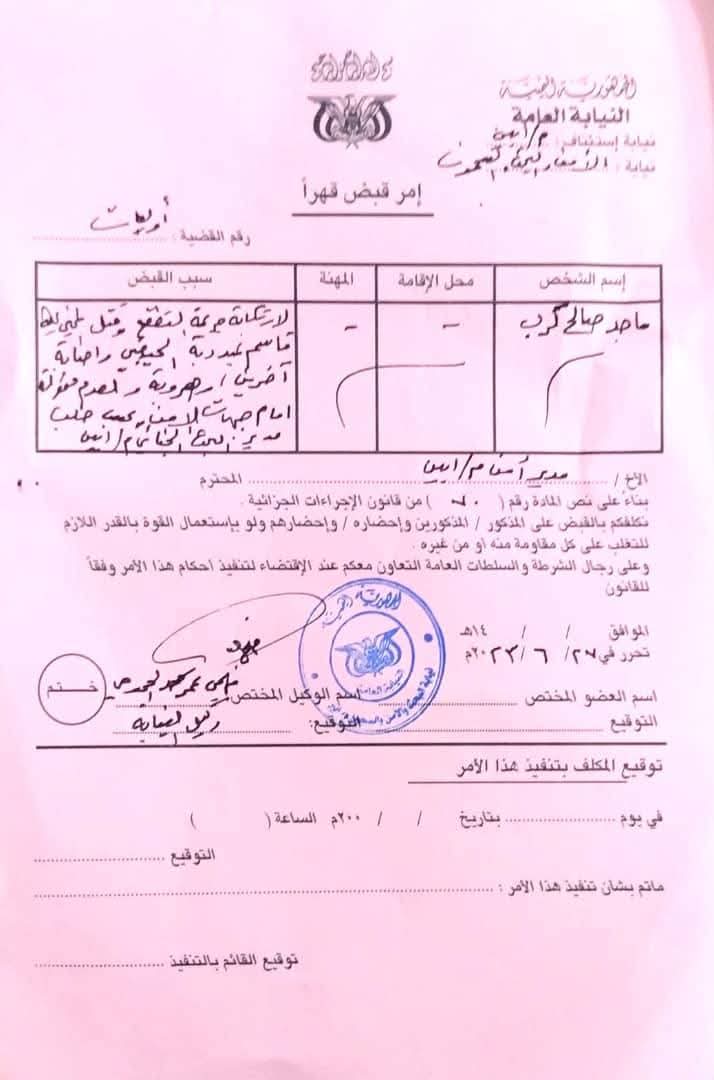 الجمهورية اليمنية
النيابة العامة
نيابة إستئناف: م/ ابين
نيابة :
إمر قبض قهراً
رقم القضية : أوليات
إسم الشخص
محل الإقامة
المهنة
سبب القبض
ماجد صالح كرب
-
-
لارتكابه جريمة التقطع وقتل
قاسم واصابة
آخرين
امام جهات الامن طلب
مدير البحث الجنائي م/ ابين
الأخ / مدير أمن م/ ابين المحترم
بناءً على نص المادة رقم ( ٧٠ ) من قانون الإجراءات الجزائية .
نكلفكم بالقبض على المذكور / المذكورين وإحضاره / وإحضارهم ولو بإستعمال القوة بالقدر اللازم
للتغلب على كل مقاومة منه او من غيره .
وعلى رجال الشرطة والسلطات العامة التعاون معكم عند الإقتضاء لتنفيذ أحكام هذا الأمر وفقاً
للقانون
الموافق / / ١٤هـ
تحرر في ٢٧ / ٦ / ٢٠٢٣م
الجمهورية اليمنية
النيابة العامة
اسم العضو المختص
اسم الوكيل المختص
التوقيع
التوقيع:
وكيل النيابة
ختم
توقيع المكلف بتنفيذ هذا الأمر
في يوم بتاريخ / / ٢٠٠م الساعة ( )
التوقيع
ماتم بشان تنفيذ هذا الأمر :
توقيع القائم بالتنفيذ